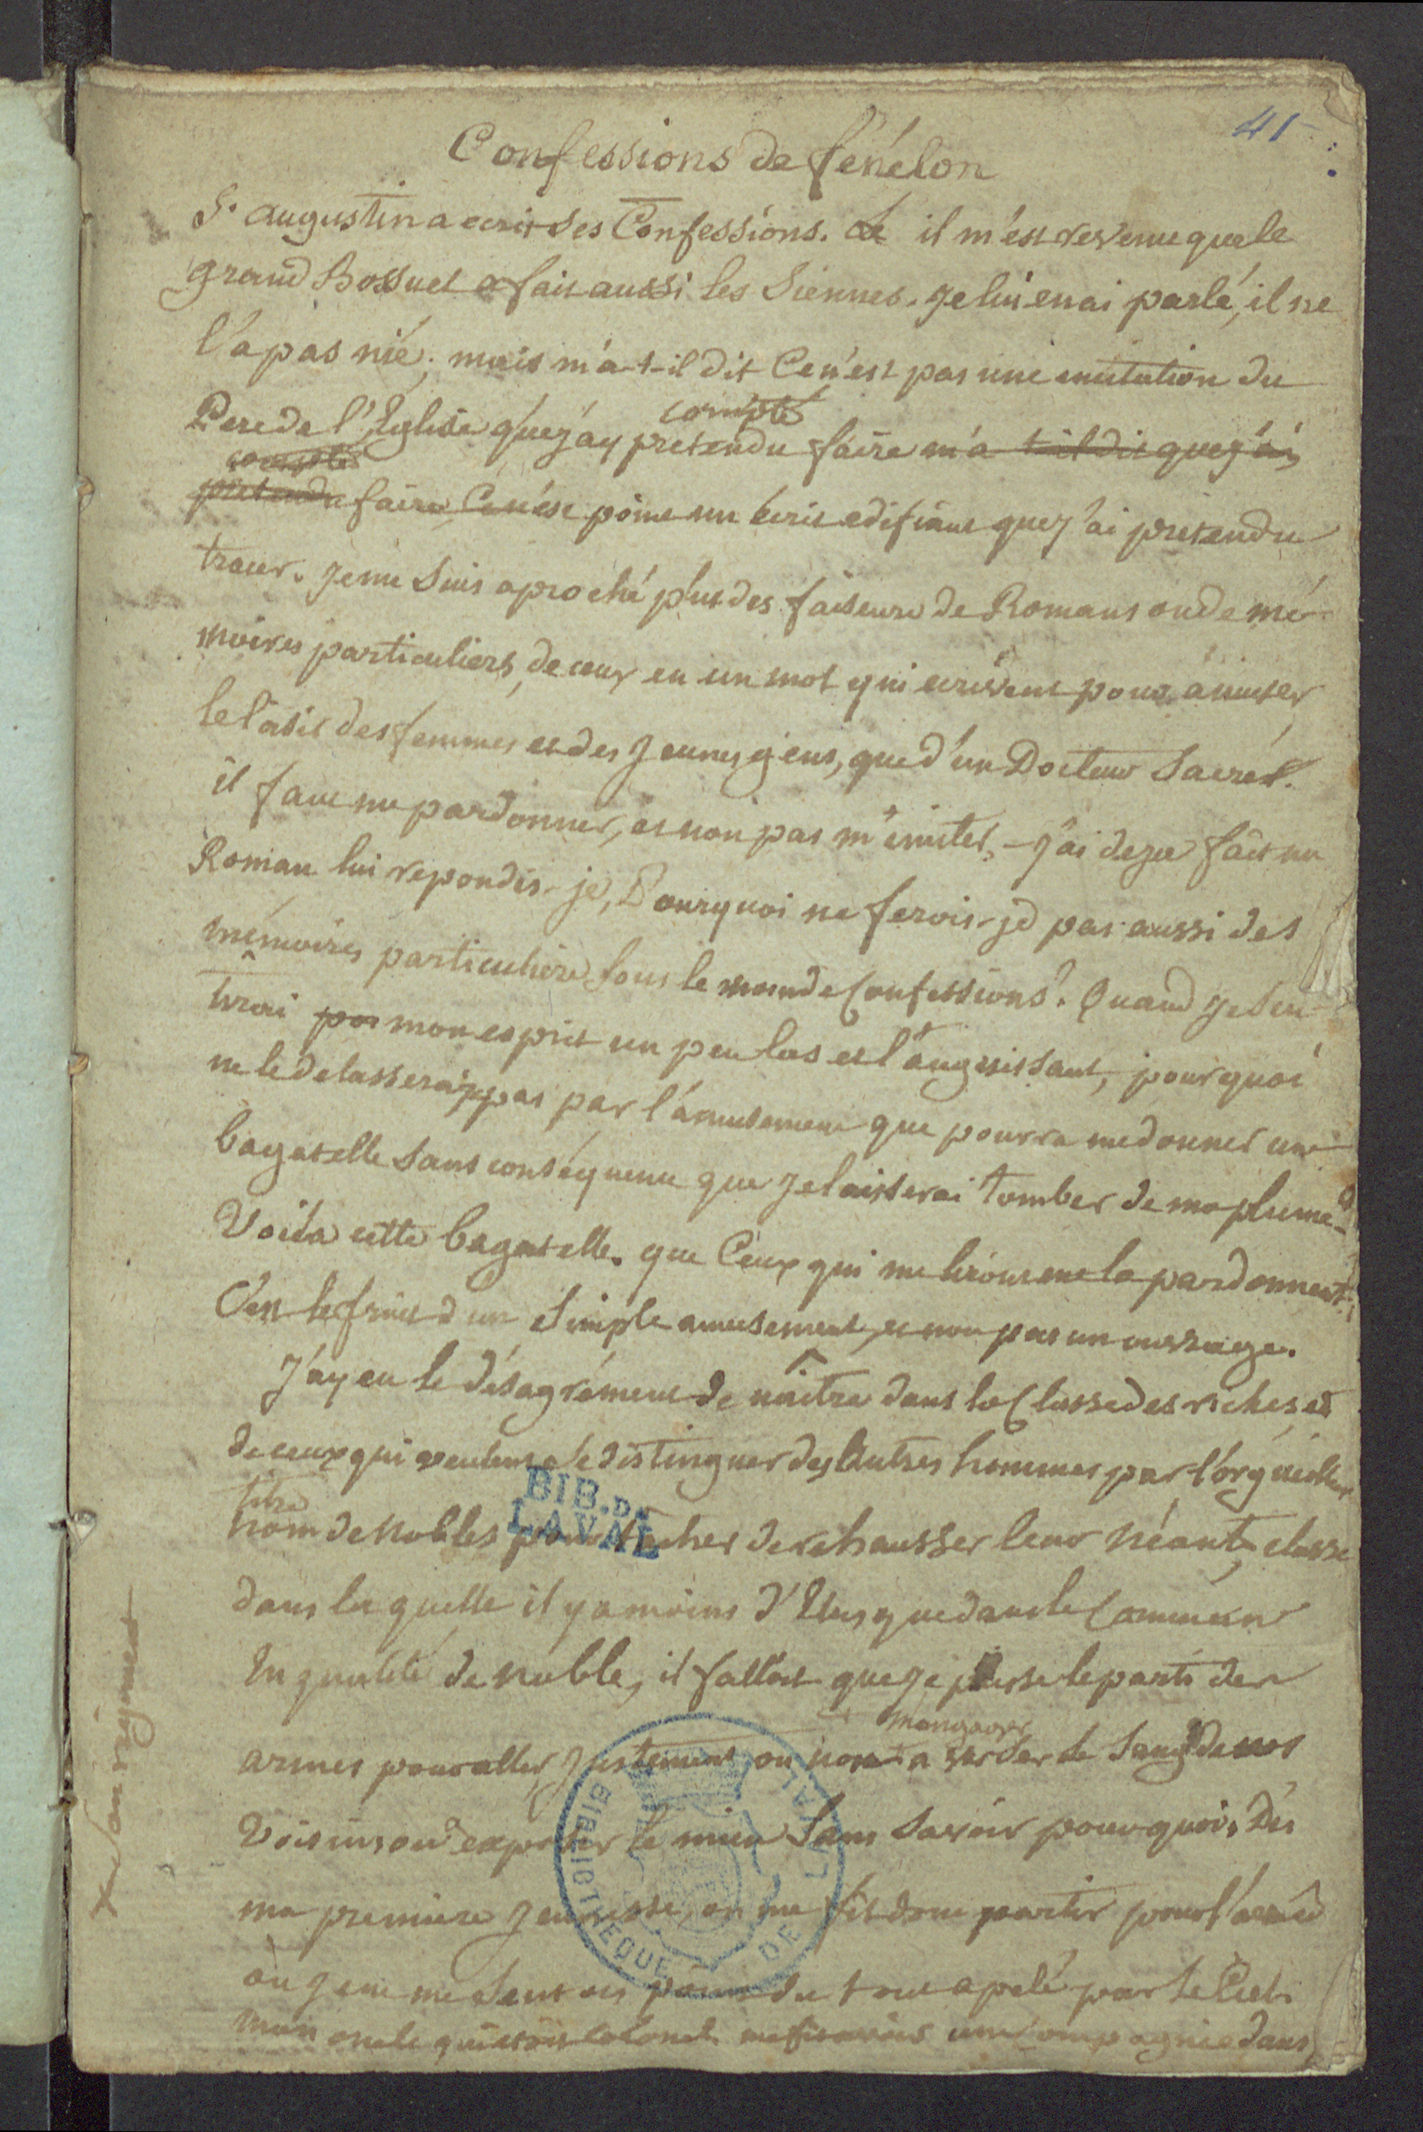 41
Confessions de fénélon
St. augustin a ecrit ses Confessions. Le il m'est revenu que le
grand Bossuet a fait aussi les Siennes. Je lui en ai parlé, il ne
l'a pas nié; mais m'a-t-il dit Ce n'est pas une imitation du
compté
Pere de l'Eglise que j'ay pretendu faire m'a t-il dit que j'ai
compté
pretendu faire Ce n'est point un écrit edifiant que j'ai pretendu
tracer. Je me suis aproché plus des faiseurs de Romans ou de mé-
moires particuliers, de ceux en un mot qui ecrivent pour amuser
le loisir des femmes et des Jeunes gens, que d'un Docteur Sacré.
il faut me pardonner, et non pas m'imiter. - J'ai deja fait un
Roman lui repondis-je, Pourquoi ne ferois-je pas aussi des
mémoires particuliers sous le nom de Confessions? Quand je sen-
tirai mon esprit un peu las et languissant, pourquoi
ne le delasserai-je pas par l'amusement que pourra me donner une
bagatelle sans conséquence que je laisserai tomber de ma plume?
Voila cette bagatelle. que Ceux qui me liront me la pardonnent.
C'est le fruit d'un simple amusement, et non pas un ouvrage.
J'ay eu le désagrément de naître dans la Classe des riches et
de ceux qui veulent se distinguer des Autres hommes par l'orgueilleux
titre
nom de nobles pour tacher de rehausser leur néant, classe
dans laquelle il y a moins d'Elus que dans le Commun
En qualité de noble, il falloit que je prisse le parti des
armes pour aller Justement, ou non a verser le Sang de nos
Voisins ou exposer le mien Sans Savoir pourquoi. Dès
ma premiere Jeunesse on me fit donc partir pour l'armée
où je ne me sentois point du tout apelé par le Ciel.
mon oncle qui etoit Colonel me fit avoir une Compagnie dans
x son régiment
BIB. DE
LAVAL
BIBLIOTHEQUE DE LAVAL